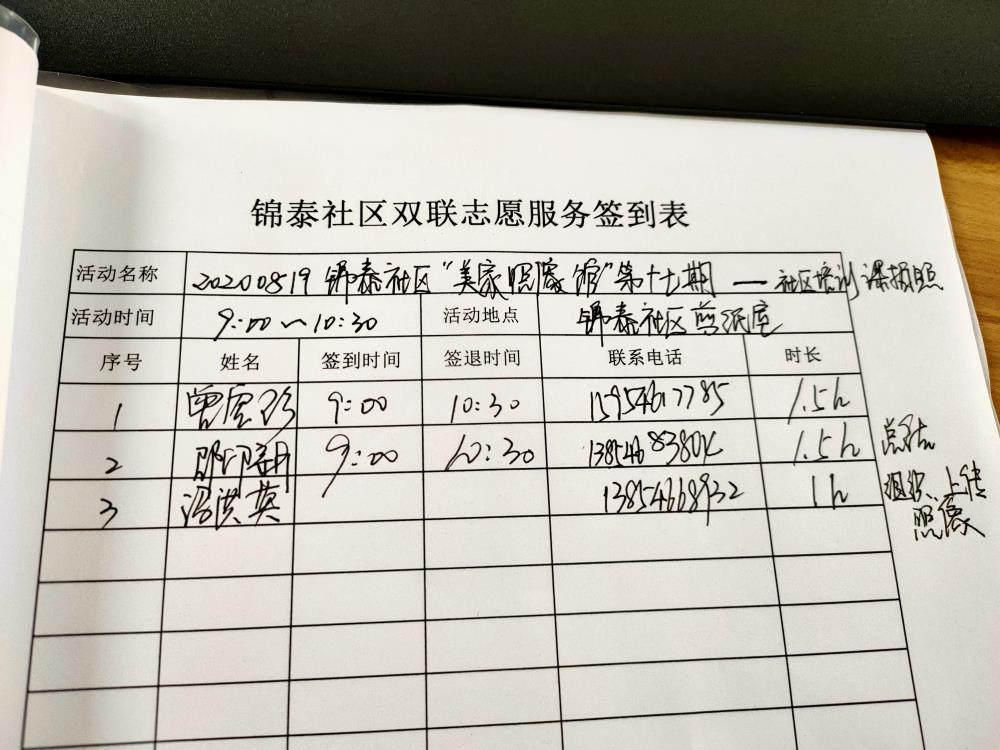 锦泰社区双联志愿服务签到表
活动名称 20200819 锦泰社区“美家照家馆”第十七期 — 社区培训课拍照
活动时间 9:00~10:30 活动地点 锦泰社区剪纸室
序号 姓名 签到时间 签退时间 联系电话 时长
1 曾宪珍 9:00 10:30 15954617785 1.5h
2 9:00 10:30 1.5h
3 洪英 13854668932 1h
组织、上传
照像